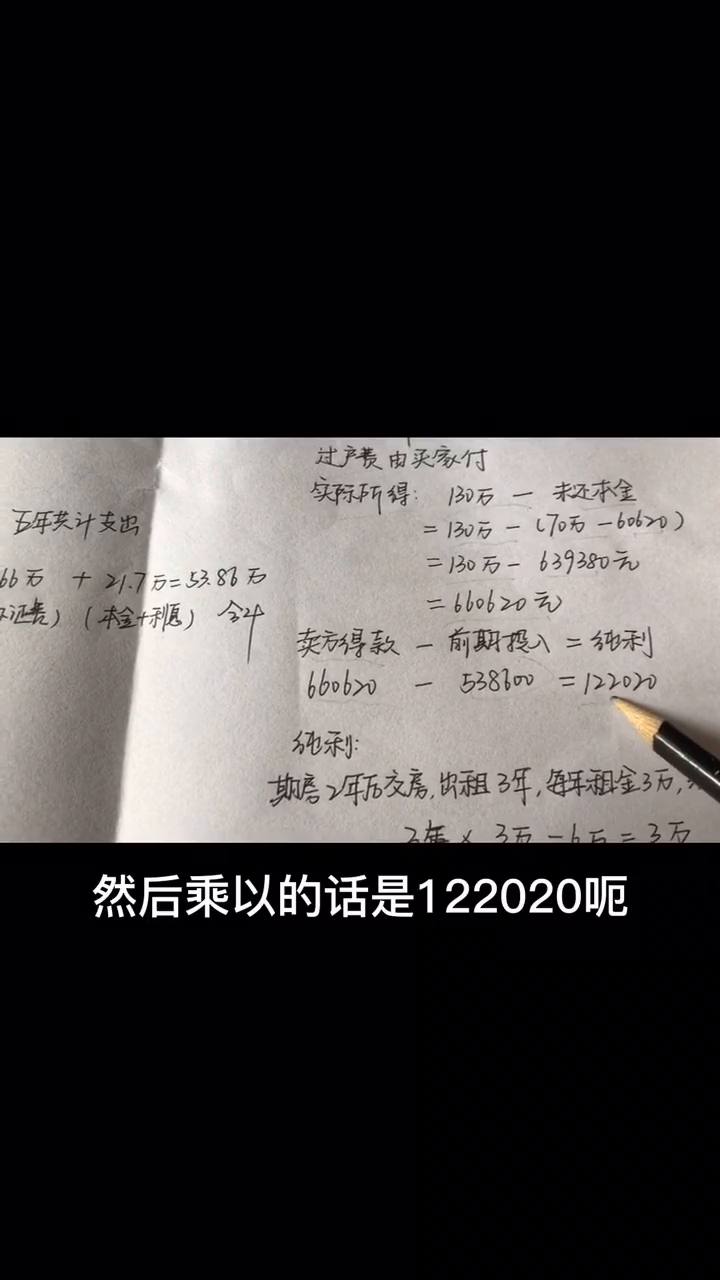 过户费由买家付
实际所得: 130万 — 未还本金
= 130万 — (70万 — 60620)
= 130万 — 639380元
= 660620元
五年共计支出
66万 + 21.7万 = 53.86万
证费) (本金+利息) 合计
卖方得款 — 前期投入 = 纯利
660620 — 538600 = 122020
纯利:
期房2年后交房,出租3年,每年租金3万,
3年 × 3万 — 6万 = 3万
然后乘以的话是122020呃